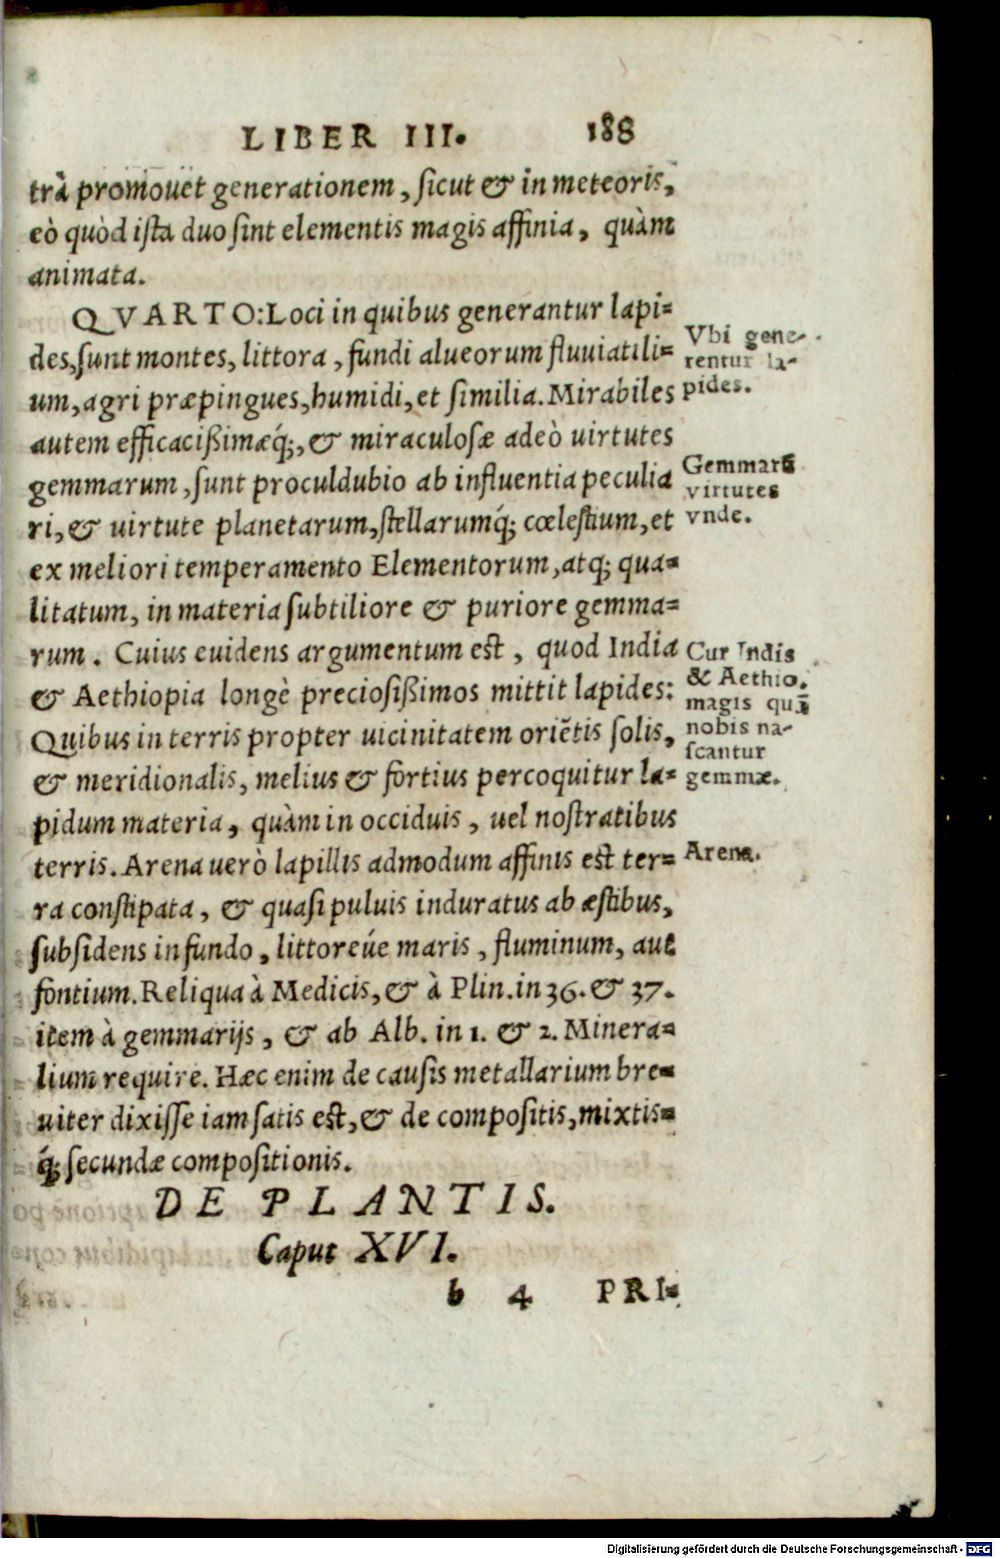 LIBER III. 188
trà promouet generationem, sicut & in meteoris,
eò quòd ista duo sint elementis magis affinia, quàm
animata.
QVARTO: Loci in quibus generantur lapi=
des, sunt montes, littora, fundi alueorum fluuiatili=
um, agri præpingues, humidi, et similia. Mirabiles
autem efficacißimæq́;, & miraculosæ adeò uirtutes
gemmarum, sunt proculdubio ab influentia peculia
ri, & uirtute planetarum, stellarumq́; cœlestium, et
ex meliori temperamento Elementorum, atq; qua=
litatum, in materia subtiliore & puriore gemma=
rum. Cuius euidens argumentum est, quod India
& Aethiopia longè preciosißimos mittit lapides:
Quibus in terris propter uicinitatem oriētis solis,
& meridionalis, melius & fortius percoquitur la=
pidum materia, quàm in occiduis, uel nostratibus
terris. Arena uerò lapillis admodum affinis est ter=
ra constipata, & quasi puluis induratus ab æstibus,
subsidens in fundo, littoreúe maris, fluminum, aut
fontium. Reliqua à Medicis, & à Plin. in 36. & 37.
item à gemmarijs, & ab Alb. in 1. & 2. Minera=
lium require. Hæc enim de causis metallarium bre=
uiter dixisse iam satis est, & de compositis, mixtis=
q́; secundæ compositionis.
Vbi gene-
rentur la-
pides.
Gemmarū
virtutes
vnde.
Cur Indis
& Aethio.
magis quā
nobis na-
scantur
gemmæ.
Arena.
DE PLANTIS.
Caput XVI.
b 4 PRI=
Digitalisierung gefördert durch die Deutsche Forschungsgemeinschaft - DFG